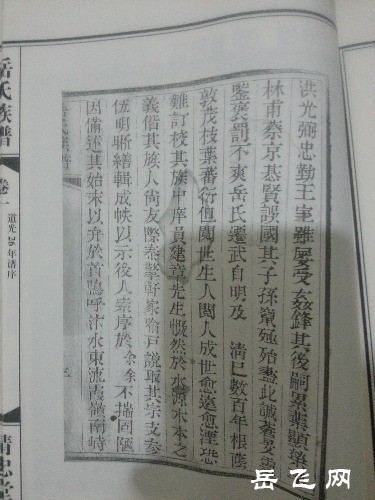 洪光弼忠勤王室雖屢受姦鋒其後嗣累葉顯榮
林甫蔡京基賢誤國其子孫竄殛殆盡此誠善
鑒衮罰不爽岳氏遷武自明及 清已數百年根蔭
敦茂枝葉蕃衍但閲世生人閲人成世愈遠愈湮恐
難訂校其族中庠員建章先生慨然於水源木本之
義偕其族人尚友際泰擎軒家喻戶說取其宗支叅
伍明晰繕輯成帙以示後人索序於 余余不揣固陋
因備述其始末以弁於首嗚呼汴水東流 嶺南峙
岳氏族譜
卷一
道光20年譜序
精忠堂
岳飞网